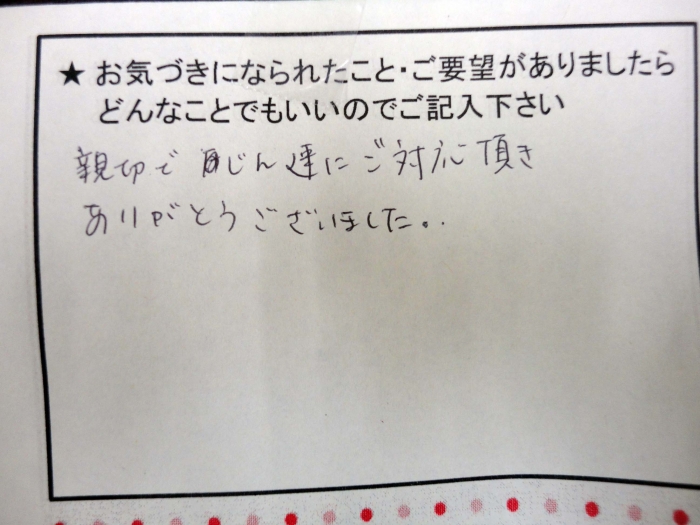 ★ お気づきになられたこと・ご要望がありましたら
どんなことでもいいのでご記入下さい
親切で じん速にご対応頂き
ありがとうございました。